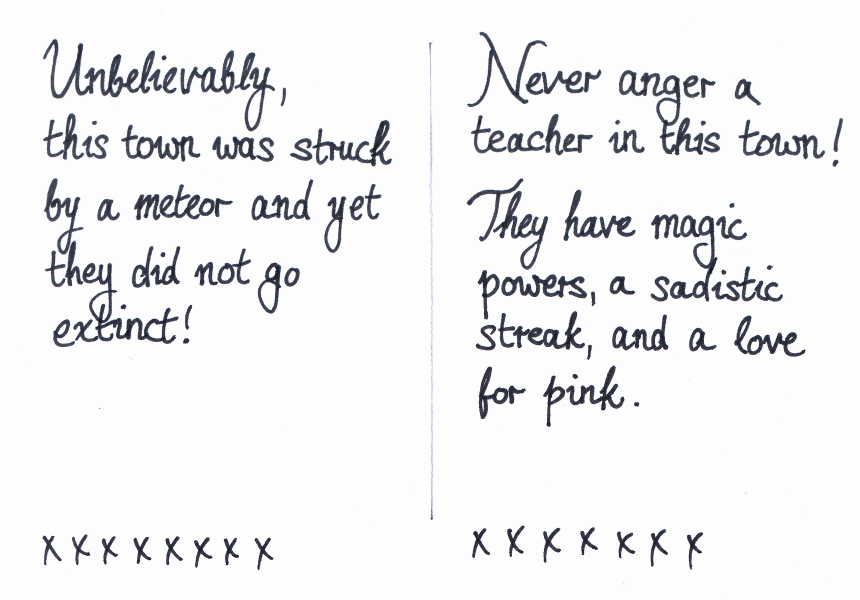 Unbelievably,
this town was struck
by a meteor and yet
they did not go
extinct!
x x x x x x x x
Never anger a
teacher in this town!
They have magic
powers, a sadistic
streak, and a love
for pink.
x x x x x x x